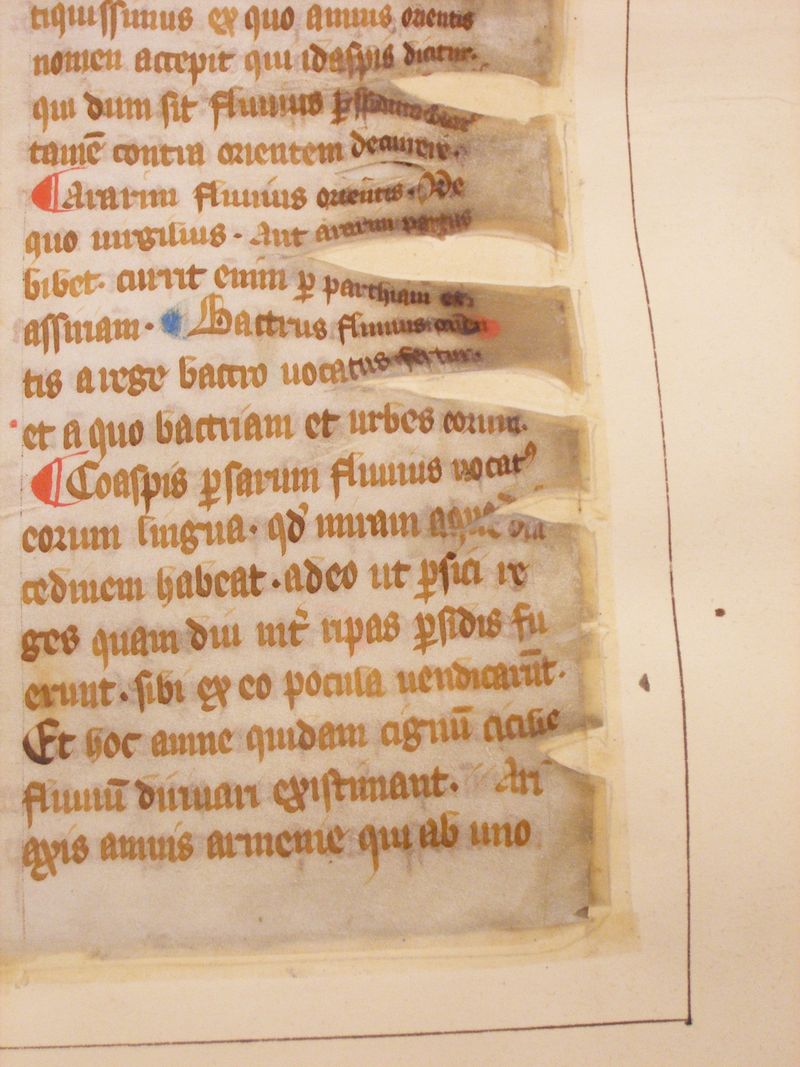 tiquissimus ex quo amnis orientis
nomen accepit qui idaspis dicitur.
qui dum sit fluuius ꝑ
tamē contra orientem decurrere.
Ararim fluuius orientis. De
quo uirgilius. Aut ararim partus
bibet. currit enim ꝑ parthiam et
assiriam. Bactrus fluuius orien
tis a rege bactro uocatus fertur.
et a quo bactriam et urbes eorum.
Coaspis ꝑsarum fluuius uocatꝰ
eorum lingua. qd' miram aque
cedinem habeat. adeo ut ꝑsici re
ges quam diu int̄ ripas ꝑsidis fu
erunt. sibi ex eo pocula uendicarūt.
Et hoc amne quidam cignū cicilie
fluuiū diriuari existimant. Ari
axis amnis armenie qui ab uno